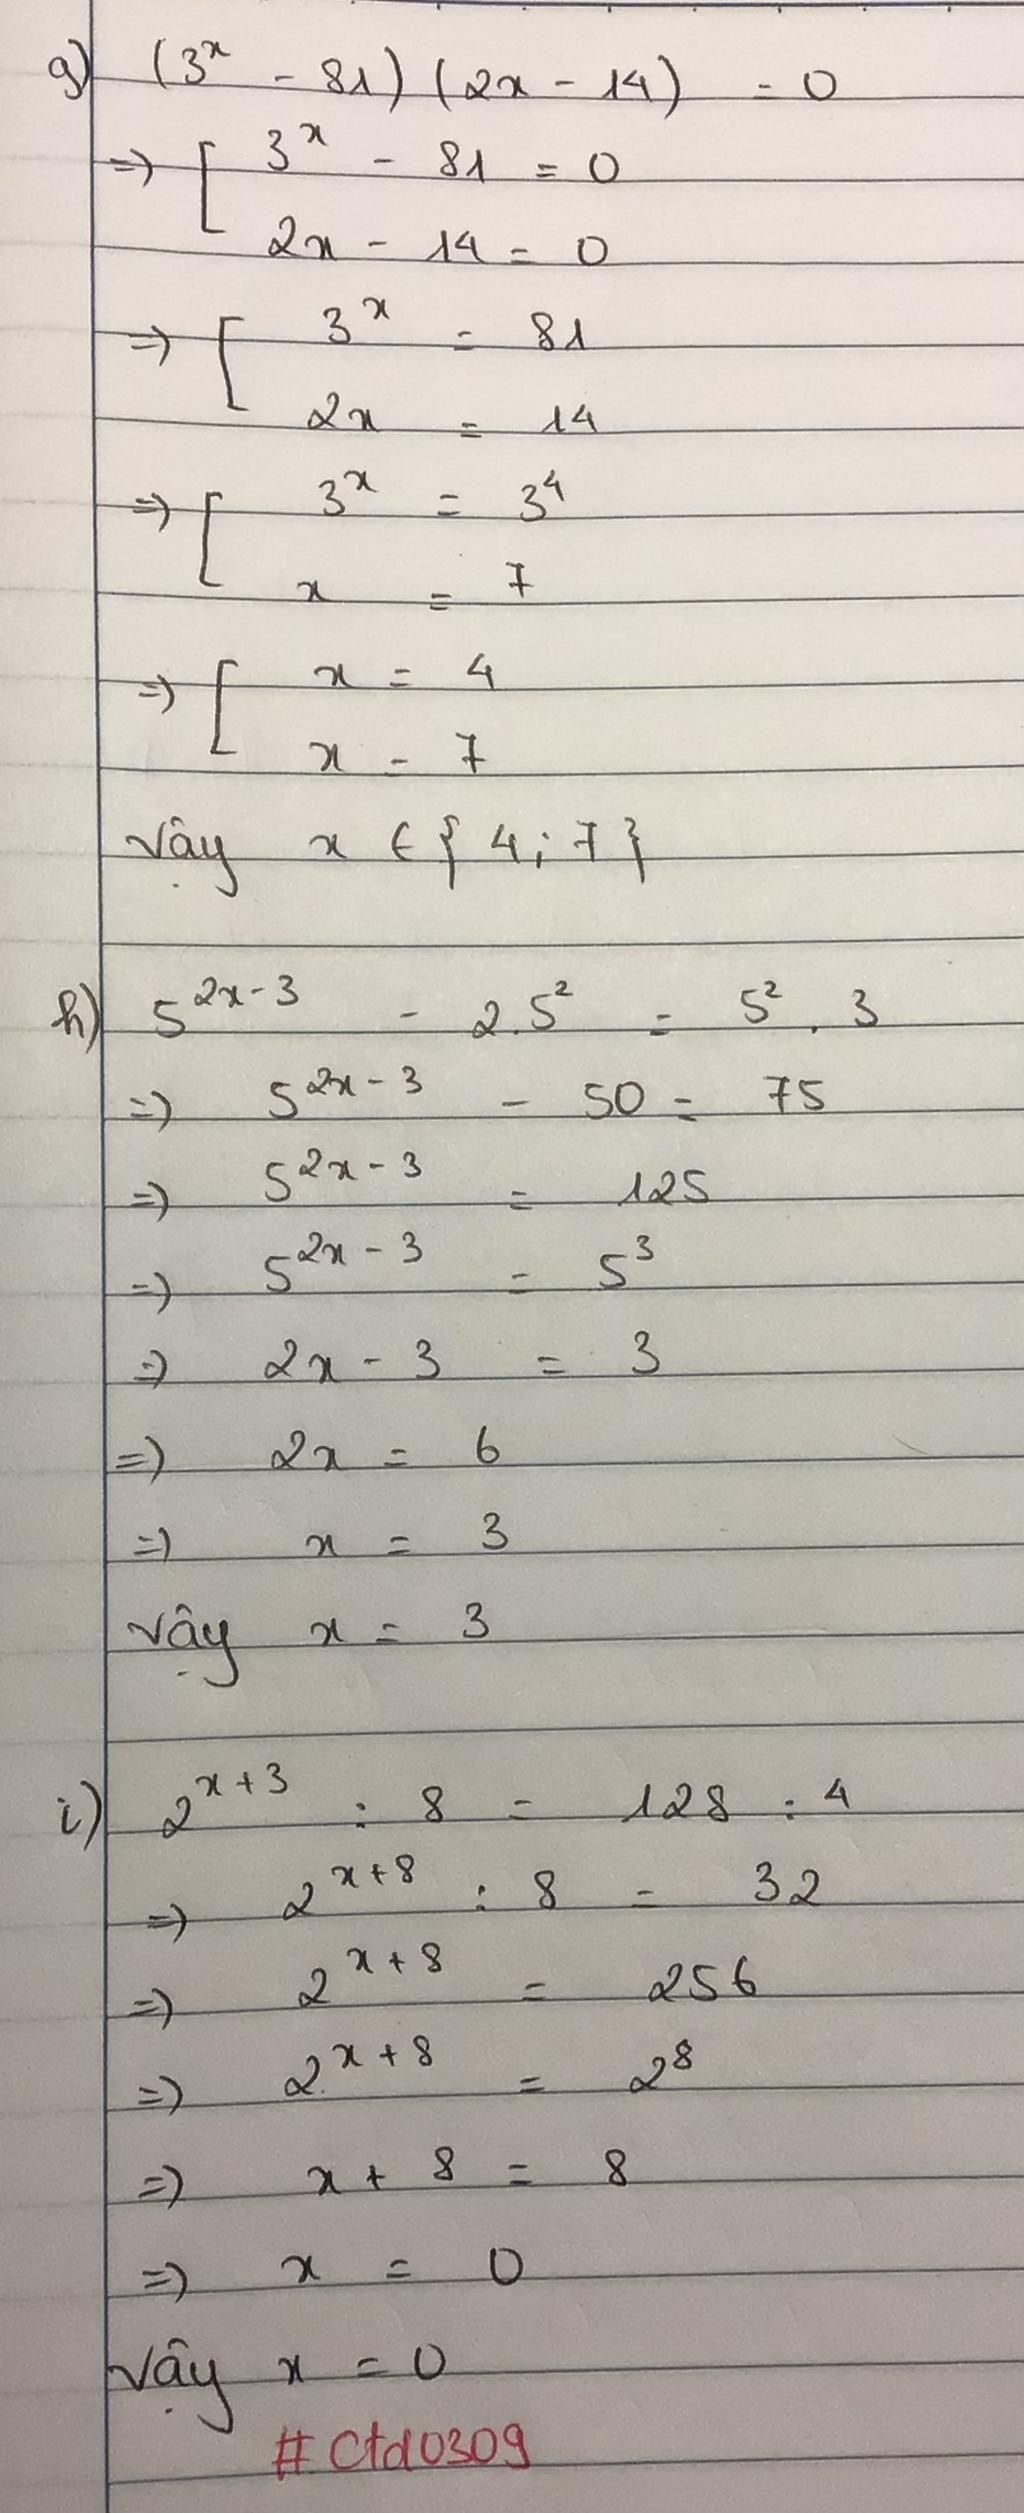 g) (3ˣ - 81) (2x - 14) = 0
=> [ 3ˣ - 81 = 0
2x - 14 = 0
=> [ 3ˣ = 81
2x = 14
=> [ 3ˣ = 3⁴
x = 7
=> [ x = 4
x = 7
Vậy x ∈ { 4 ; 7 }
h) 5²ˣ⁻³ - 2.5² = 5² . 3
=> 5²ˣ⁻³ - 50 = 75
=> 5²ˣ⁻³ = 125
=> 5²ˣ⁻³ = 5³
=> 2x - 3 = 3
=> 2x = 6
=> x = 3
Vậy x = 3
i) 2ˣ⁺³ : 8 = 128 : 4
=> 2ˣ⁺⁸ : 8 = 32
=> 2ˣ⁺⁸ = 256
=> 2ˣ⁺⁸ = 2⁸
=> x + 8 = 8
=> x = 0
Vậy x = 0
#Ctd0309